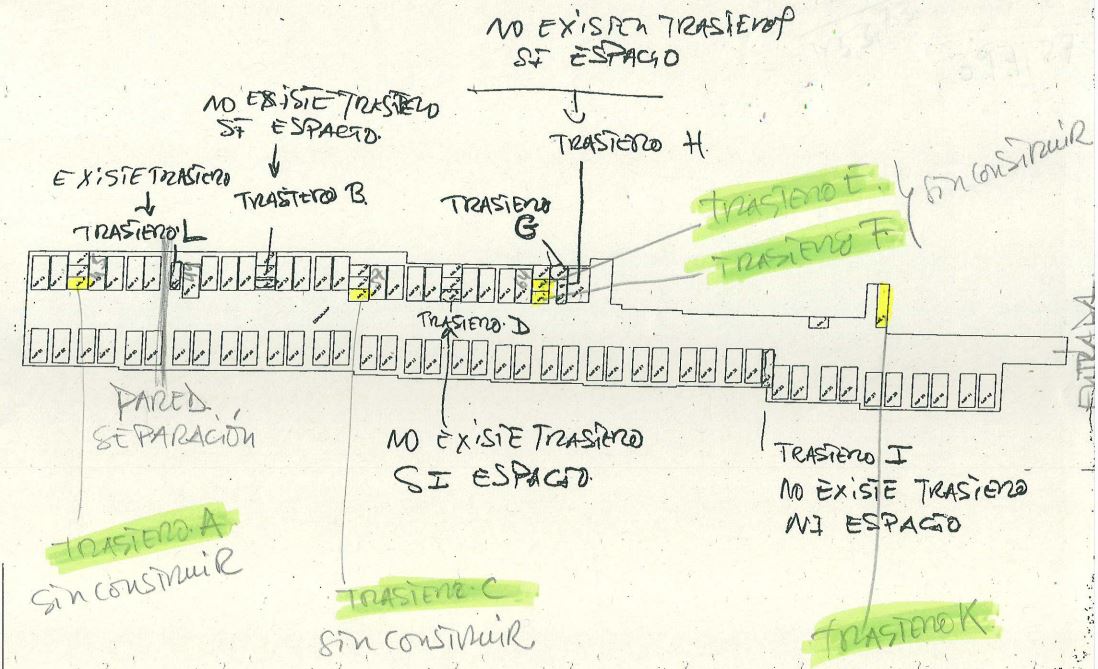 NO EXISTEN TRASTEROS
SI ESPACIO
NO EXISTE TRASTERO
SI ESPACIO.
TRASTERO H.
EXISTE TRASTERO
TRASTERO B.
TRASTERO
G
TRASTERO E.
TRASTERO F
sin construir
TRASTERO L
TRASTERO D
ENTRADA
PARED
SEPARACIÓN
NO EXISTE TRASTERO
SI ESPACIO.
TRASTERO I
NO EXISTE TRASTERO
NI ESPACIO
TRASTERO A
sin construir
TRASTERO C
sin construir
TRASTERO K